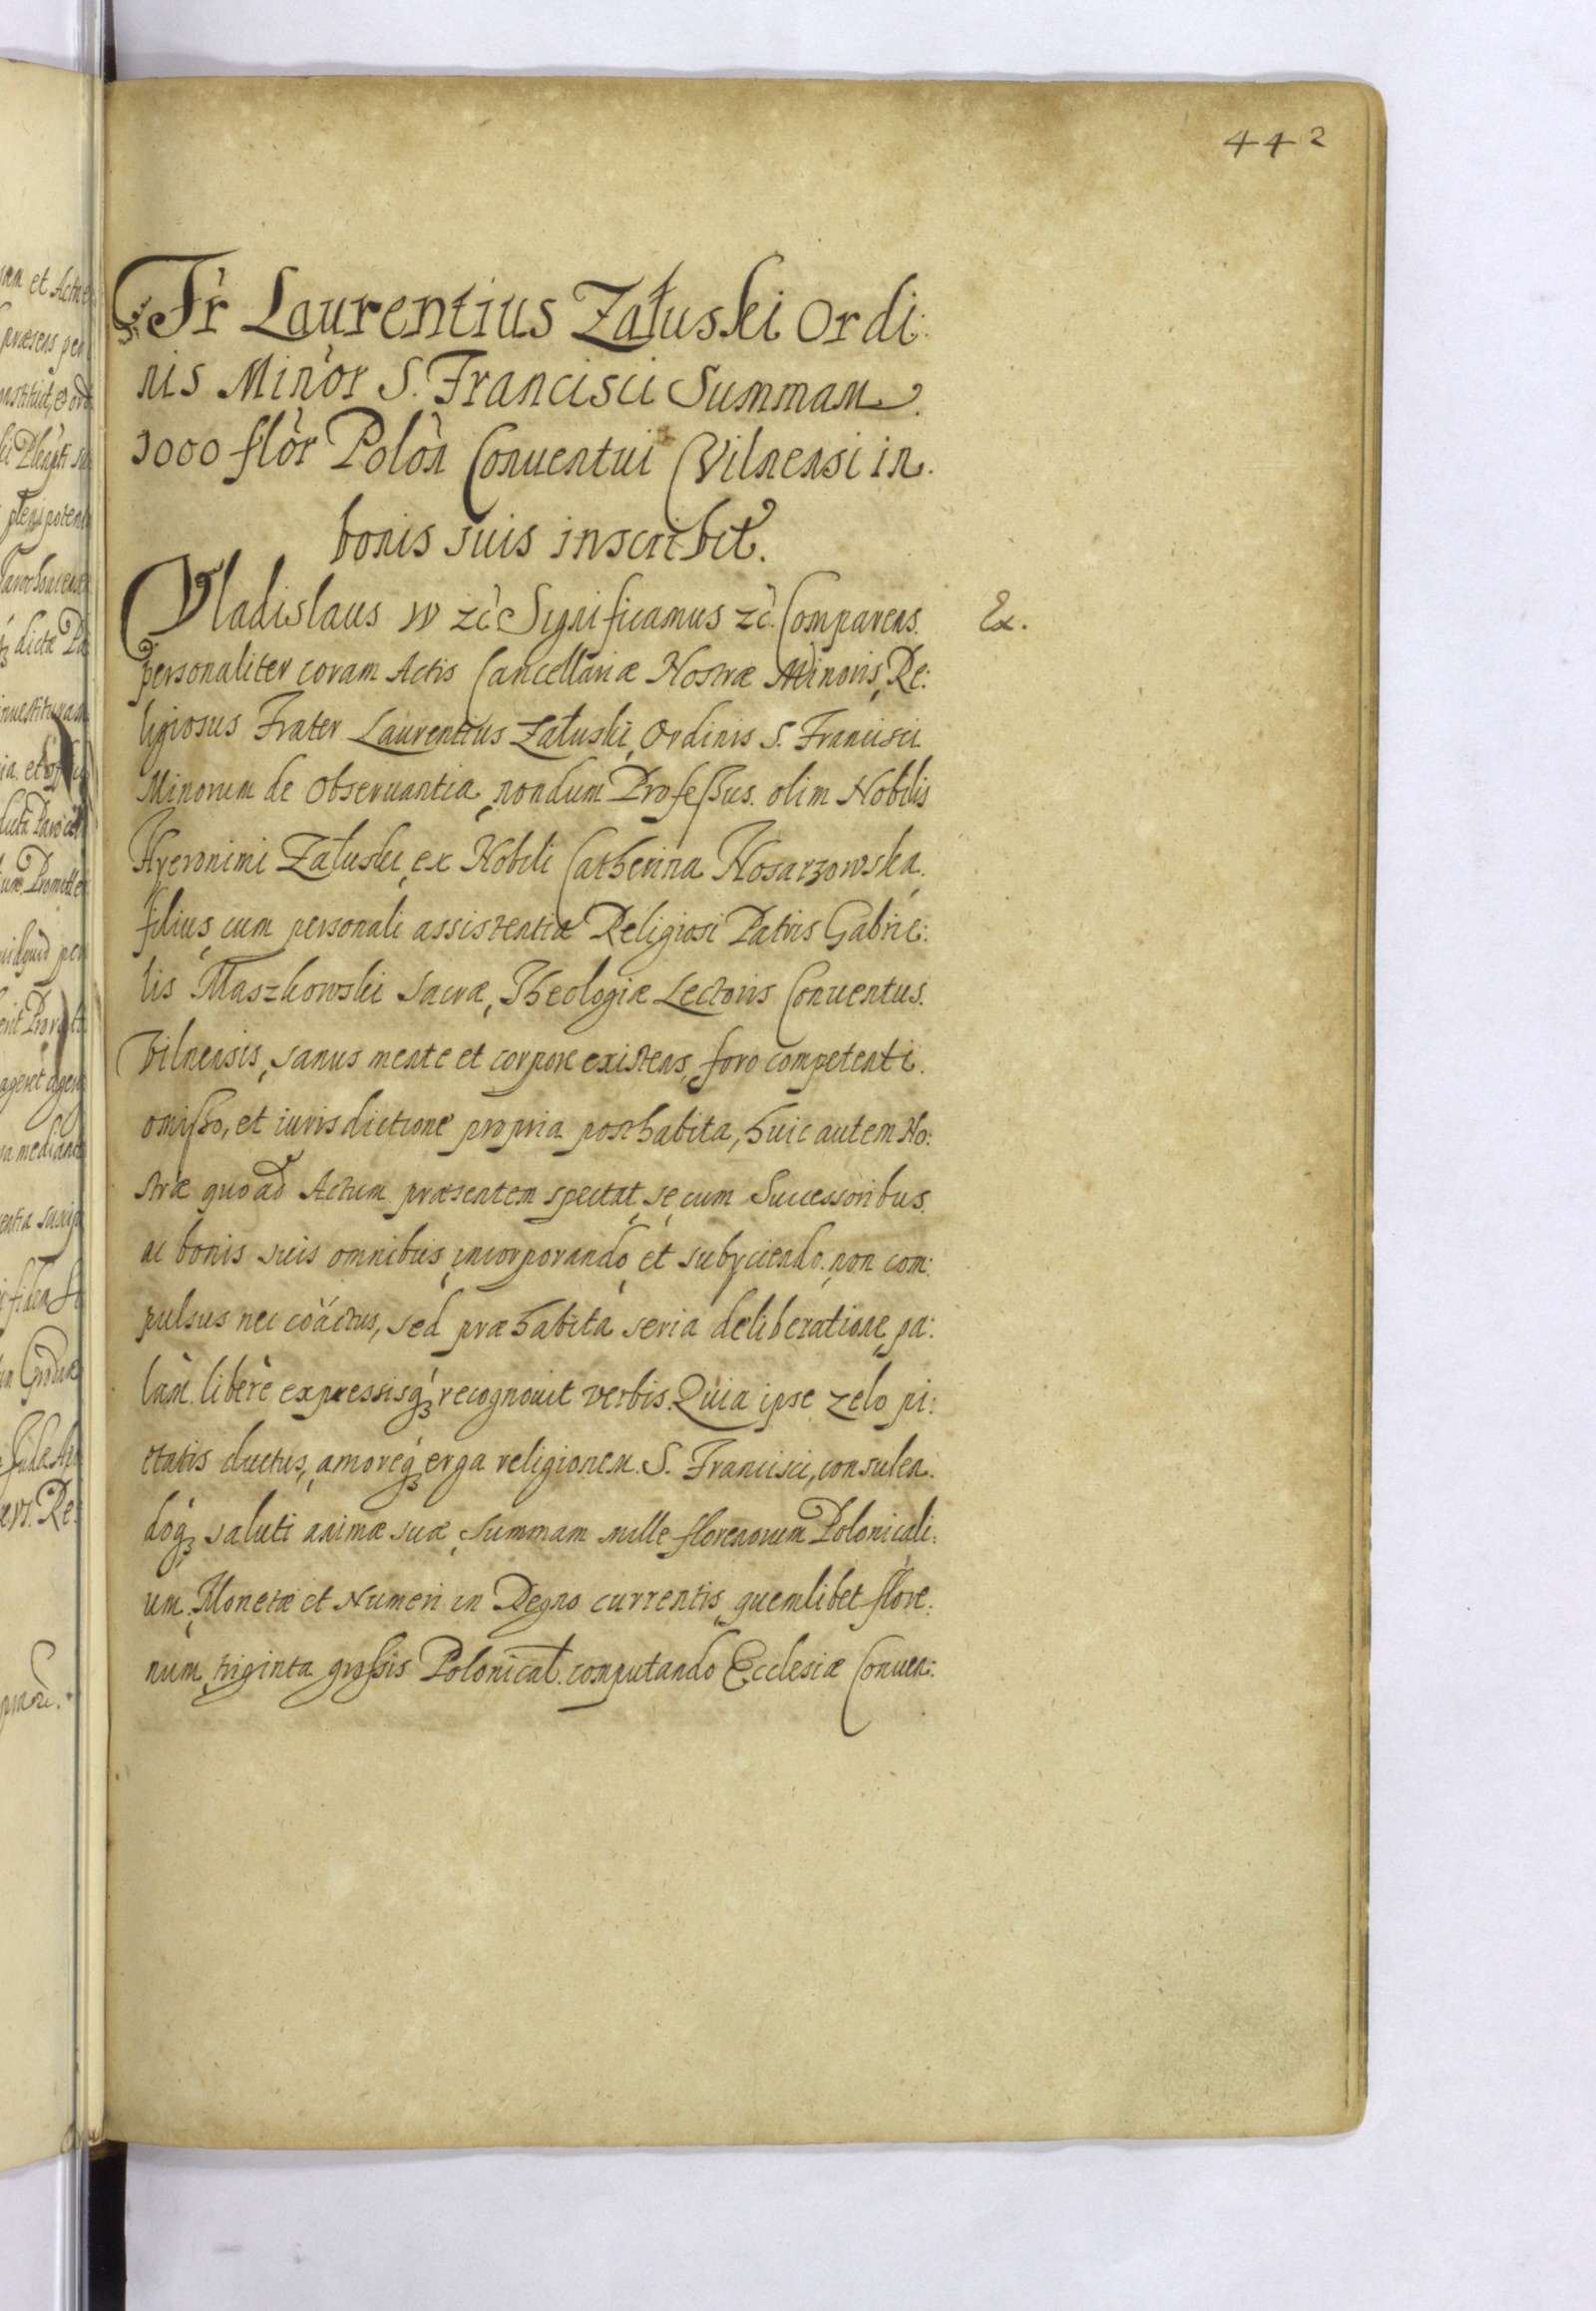 442
Fr Laurentius Załuski Ordi:
nis Minor S. Francisci Summam
1000 flor Polon Conuentui Vilnensi in
bonis suis inscribit.
Vladislaus IV zc Significamus zc. Comparens
Ex.
personaliter coram Actis Cancellariæ Nostræ Minoris, Re:
ligiosus Frater Laurentius Załuski, Ordinis S. Francisci
Minorum de Obseruantia, nondum Professus. olim Nobilis
Hyeronimi Załuski, ex Nobili Catherina Kosarzowska,
filius, cum personali assistentia Religiosi Patris Gabrie:
lis Maszkowski Sacræ, Theologiæ Lectoris Conuentus
Vilnensis, sanus mente et corpore existens, foro competenti
omisso, et iurisdictione propria posthabita, huic autem No:
stræ quoad Actum præsentem spectat, se, cum Successoribus
ac bonis suis omnibus, incorporando, et subyciendo, non com:
pulsus nec coactus, sed præhabita seria deliberatione, pa:
lam libere expressisq₃ recognouit verbis. Quia ipse zelo pi:
etatis ductus, amoreq₃ erga religionem S. Francisci, consulen
doq₃ saluti animæ suæ, Summam mille florenorum Polonicali:
um, Monetæ et Numeri in Regno currentis, quemlibet flore:
num, triginta grossis Polonical. computando Ecclesiæ Conuen: